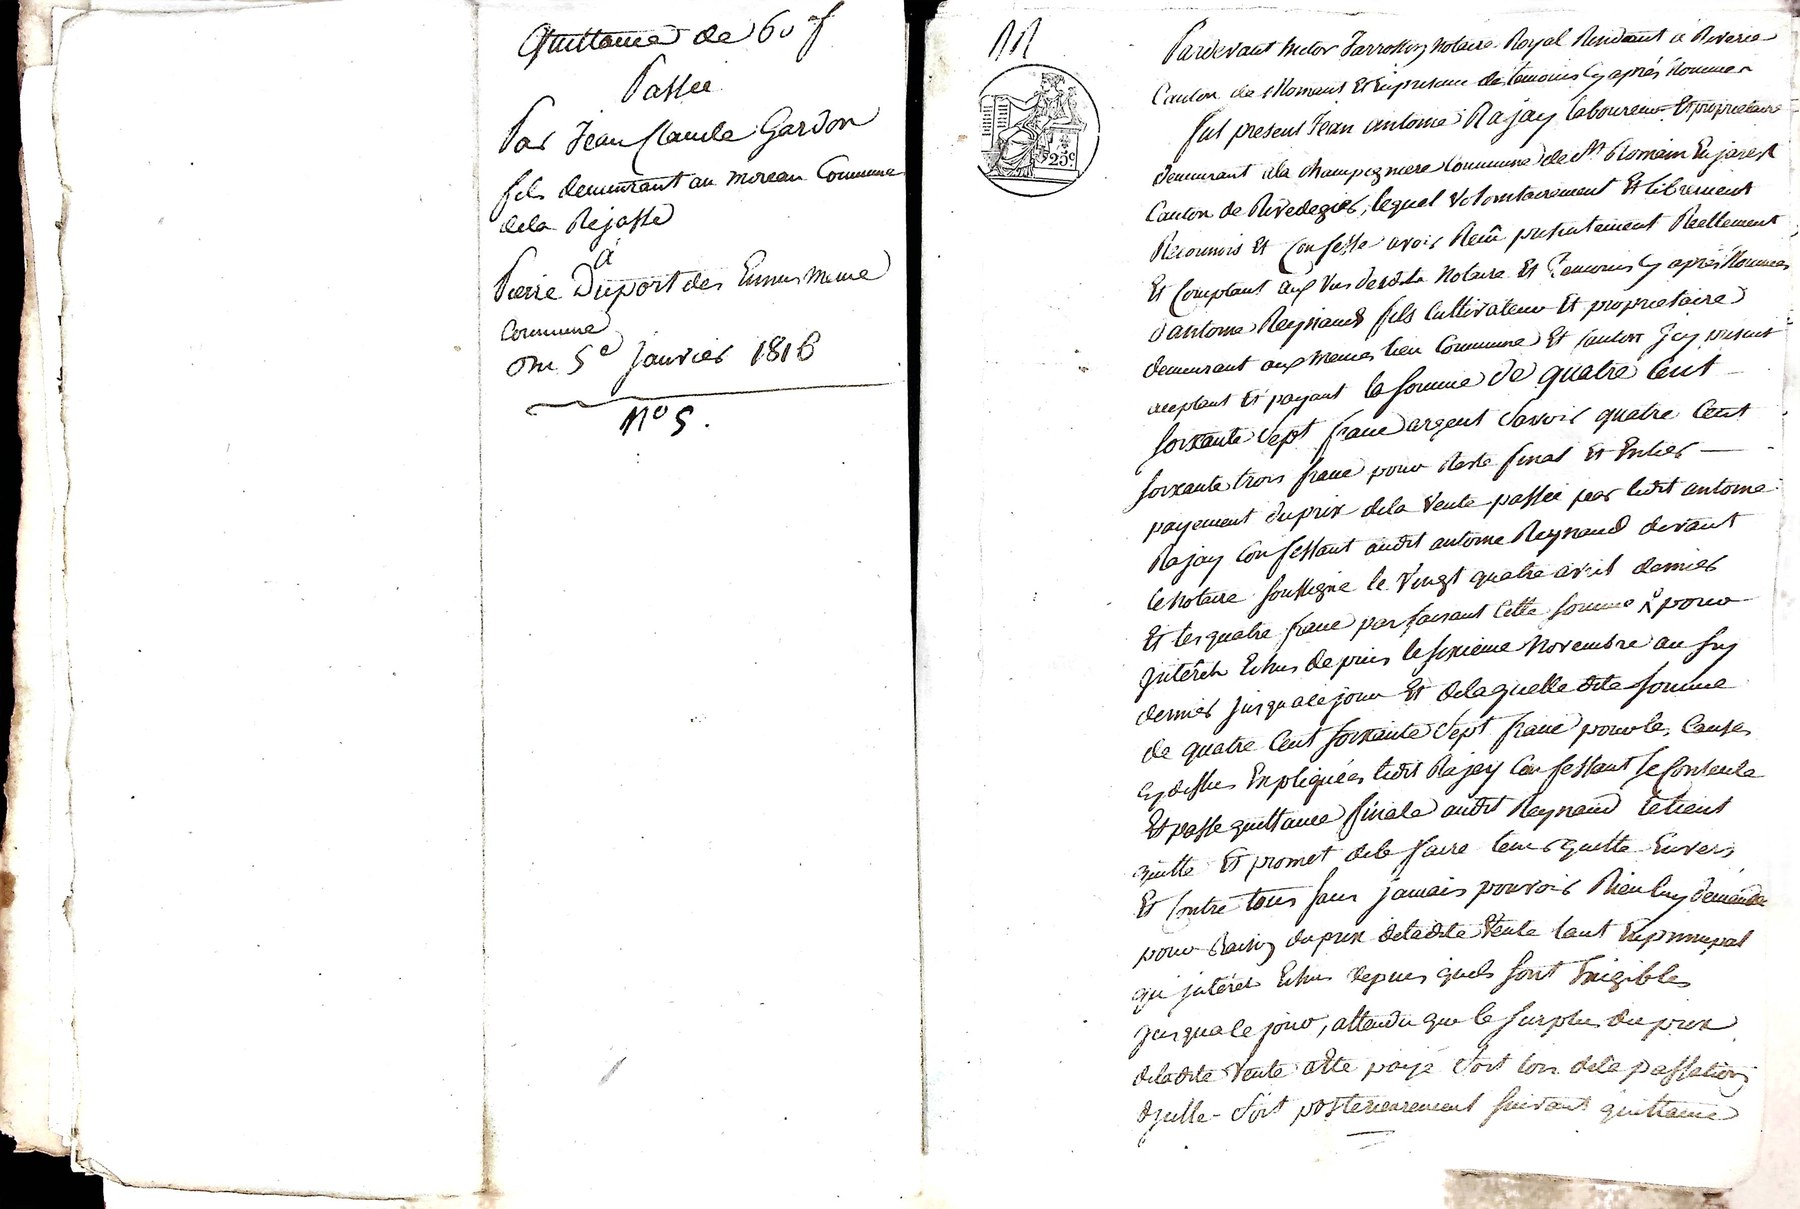 Quittance de 60 f
Passée
Par Jean Claude Gardon
fils demeurant au moreau Commune
dela Rejasse
à
Pierre Duport des Eimes meme
Commune
Du 5e Janvier 1816
No 5.
Pardevant hector Jarrosson Notaire Royal Residant à Riverie
Canton de Mornant Et En presence de temoins Cy aprés Nommes
fut present Jean antoine Rajay laboureur Et proprietaire
demeurant ala Champignere Commune de St Romain En jarest
Canton de Rivedegier, lequel volontairement Et librement
Reconnois Et Confesse avoir Reçu presentement Reellement
Et Comptant aux vus desdits Notaire Et Temoins Cy aprés Nommés
d'antoine Reynaud fils Cultivateur Et proprietaire
demeurant aux memes lieu Commune Et Canton Jcy present
aceptant Et payant la somme de quatre Cent
soixante sept franc argent savoir quatre Cent
soixante trois franc pour Reste final Et Entier
payement du prix dela Vente passée par ledit antoine
Rajay Confessant audit antoine Reynaud devant
le Notaire soussigné le Vingt quatre avril dernier
Et les quatre franc parfaisant Cette somme pour
Jntérêts Echus depuis le sixieme Novembre au
dernier jusqu'a ce jour Et delaquelle dite somme
de quatre Cent soixante sept franc pour les Causes
Cy dessus Expliquées ledit Rajay Confessant se Contente
Et passe quittance finale audit Reynaud le tient
quitte Et promet dele faire tenir quitte Envers
Et Contre tous sans jamais pouvoir Rien luy demander
pour Raison du prix deladite Vente tant En principal
qu'jntérêts Echus depuis quels sont Exigibles
jusqua ce jour, attendu que le surplus du prix
deladite Vente a été payé soit lors dela passation
d'Jcelle soit posterieurement suivant quittance
25c